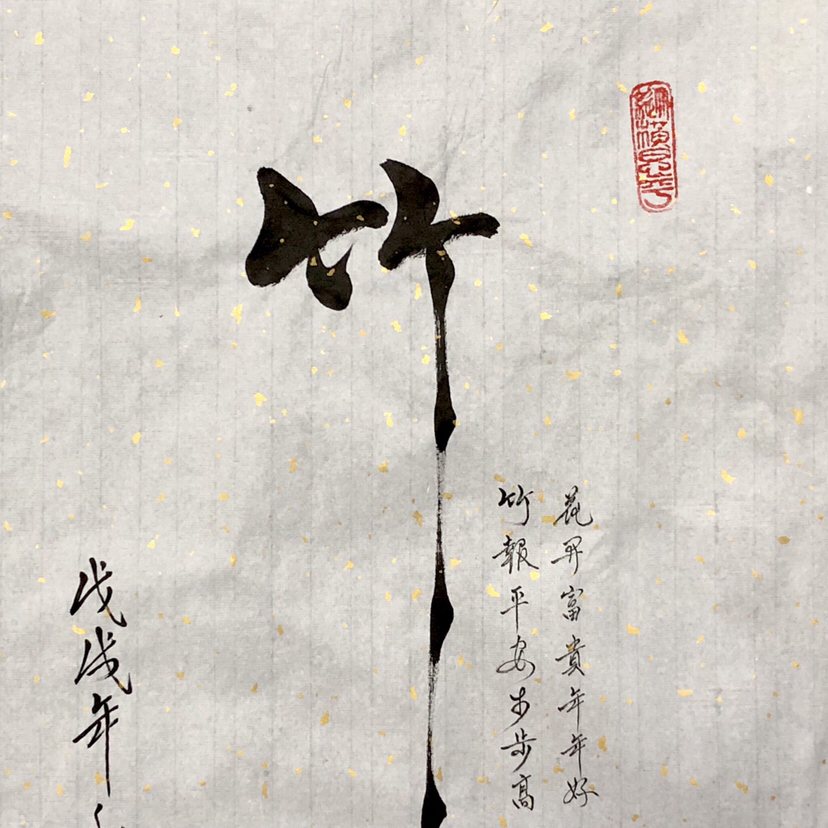 竹
花開富貴年年好
竹報平安步步高
戊戌年